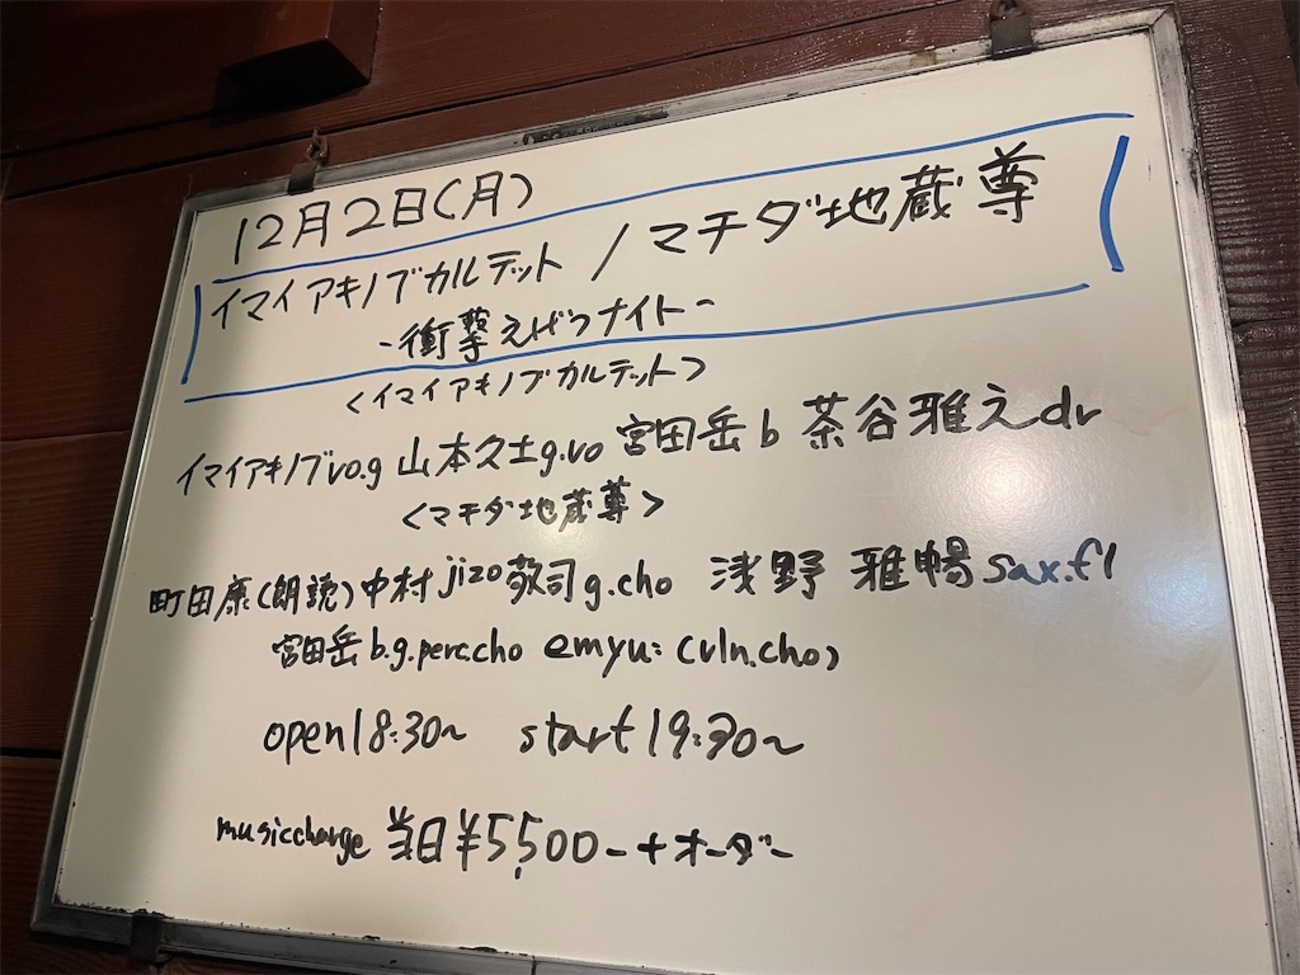 12月2日(月)
イマイアキノブカルテット / マチダ地蔵尊
-衝撃えげつナイト-
<イマイアキノブカルテット>
イマイアキノブvo.g 山本久土g.vo 宮田岳b 茶谷雅之dr
<マチダ地蔵尊>
町田康(朗読)中村jizo敬司g.cho 浅野 雅暢sax.fl
宮田岳b.g.perc.cho emyu:(vln.cho)
open18:30~ start19:30~
musiccharge 当日¥5,500-+オーダー